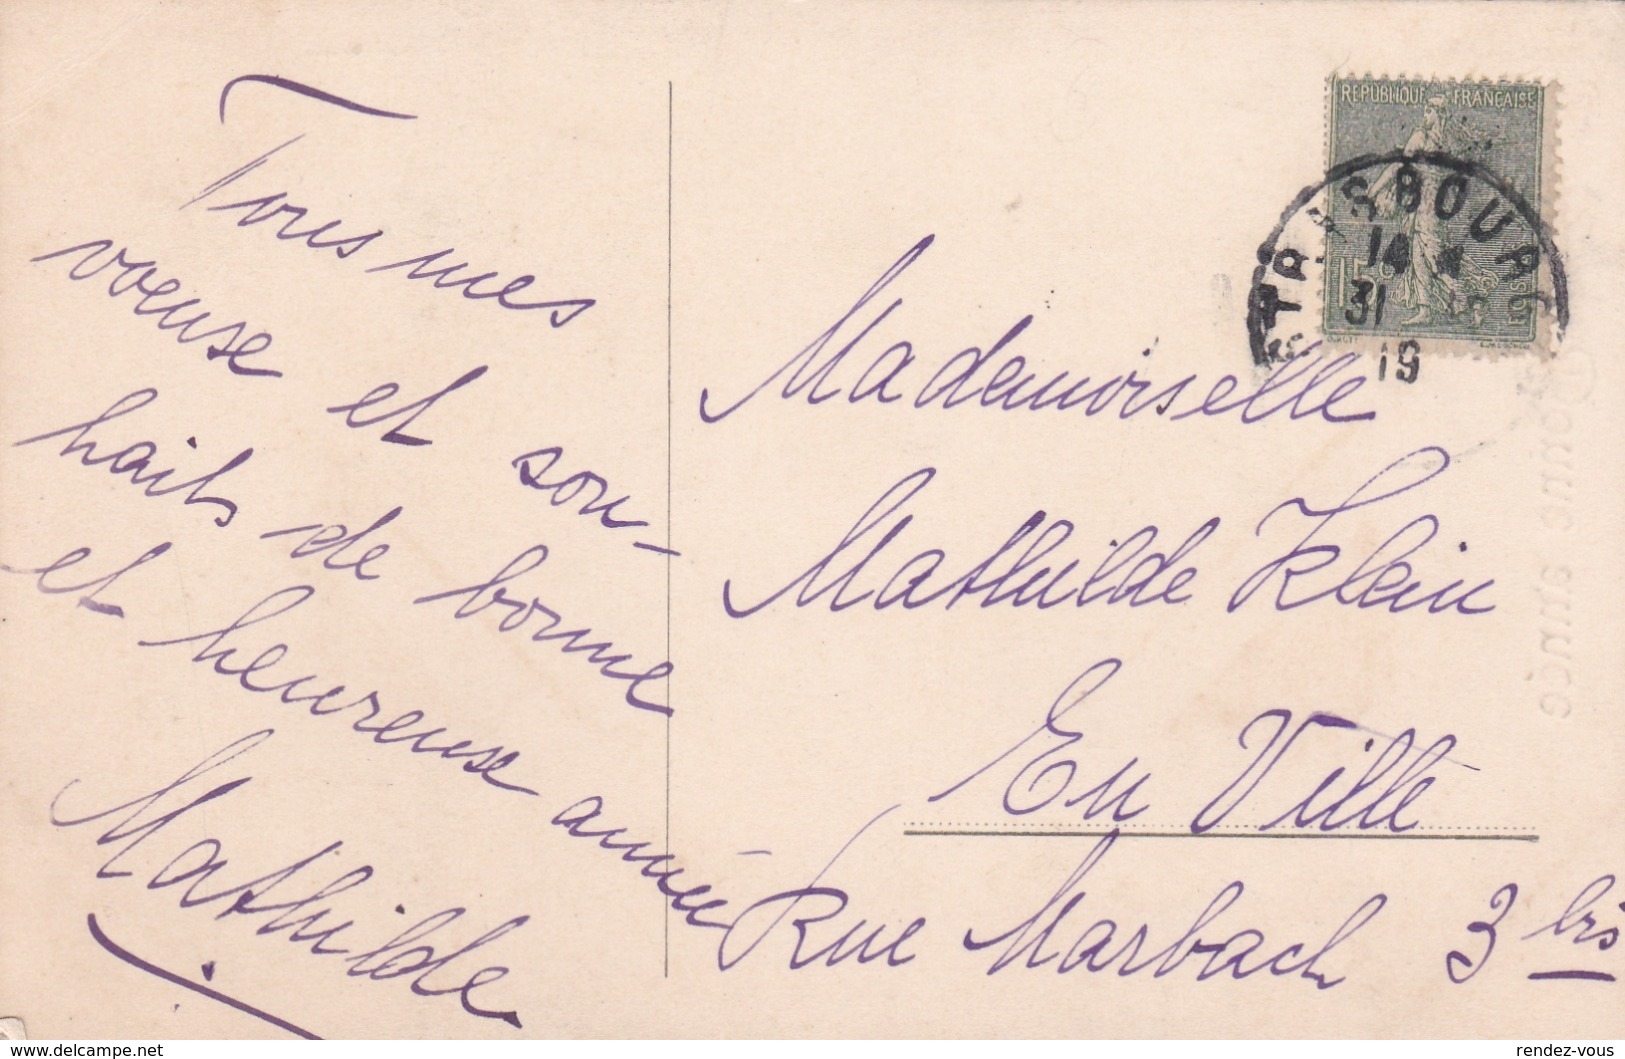 Tous mes
voeuse et sou-
haits de bonne
et heureuse année
Mathilde
REPUBLIQUE FRANÇAISE
15c
POSTES
STRASBOURG
14
31
19
Mademoiselle
Mathilde Klein
En Ville
Rue Marbach 3 bis
Bonne année
www.delcampe.net
rendez-vous